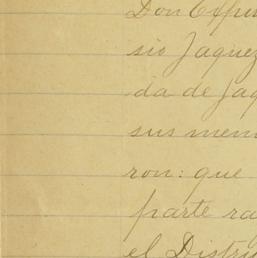 Don
sio Jaquez
da de Jaq
sus mem
ron: que
parte ra
el Distri